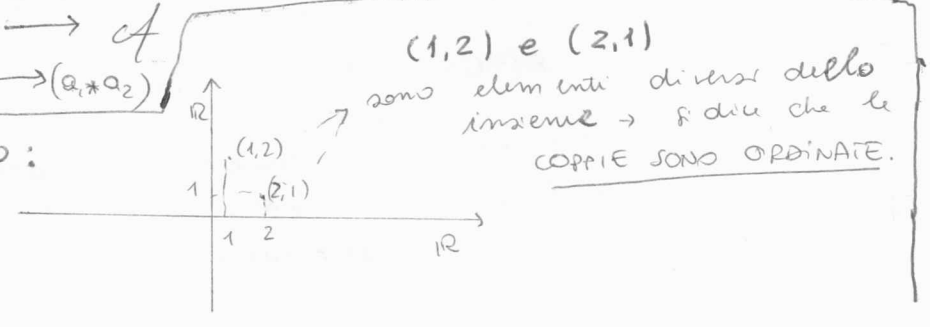 → A
→ (a₁ * a₂)
o :
(1,2) e (2,1)
sono elementi diversi dello
insieme → si dice che le
COPPIE SONO ORDINATE.
ℝ
(1,2)
1 (2,1)
1 2
ℝ